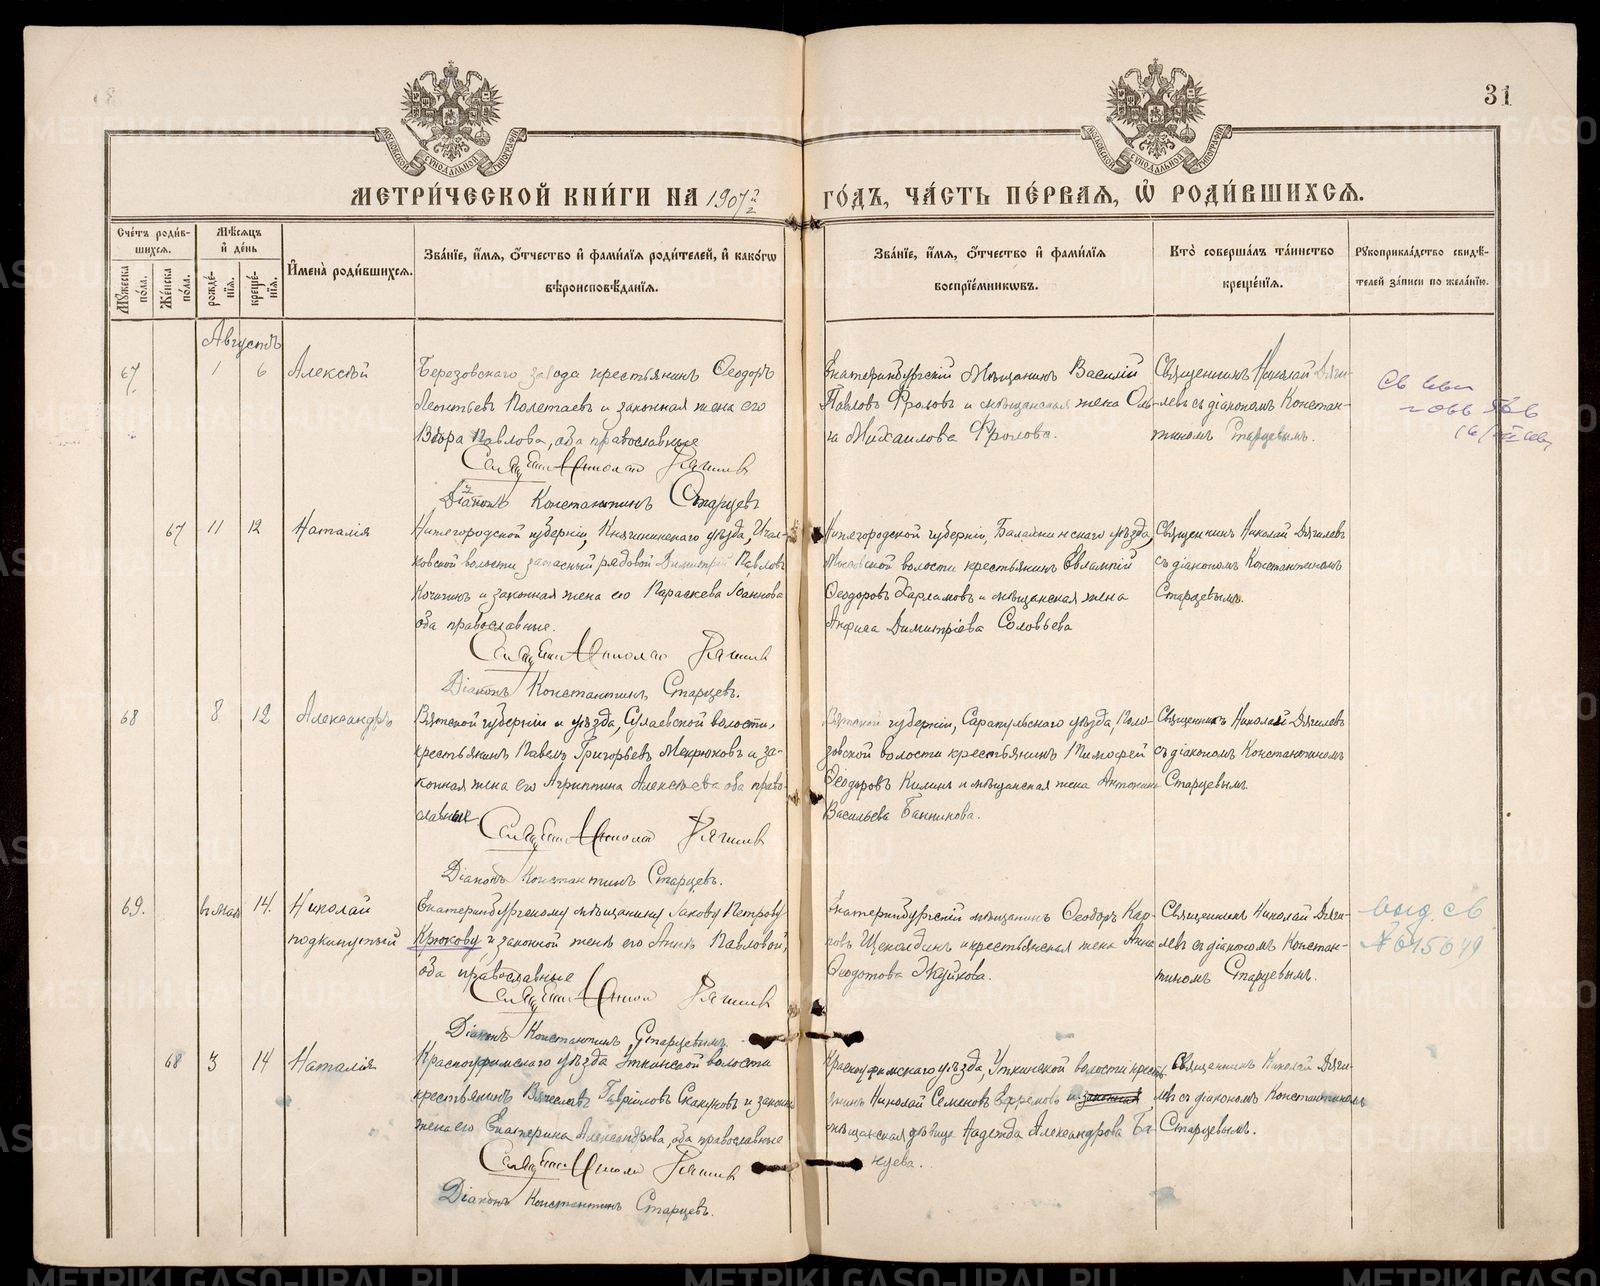 31
МОСКОВСКОЙ СѴНОДАЛЬНОЙ ТИПОГРАФІИ
МОСКОВСКОЙ СѴНОДАЛЬНОЙ ТИПОГРАФІИ
МЕТРИ́ЧЕСКОЙ КНИ́ГИ НА 1907й
ГО́ДЪ, ЧА́СТЬ ПЕ́РВАЯ, Ѡ РОДИ́ВШИХСЯ.
Сче́тъ роди́в-
шихся.
Мѣ́сяцъ
и де́нь
Му́жеска
по́ла.
Же́нска
по́ла.
рожде́-
нїя.
креще́-
нїя.
Имена̀ роди́вшихся.
Зва́нїе, и́мя, о́тчество и фами́лїя роди́телей, и како́гѡ
вѣроисповѣ́данїя.
Зва́нїе, и́мя, о́тчество и фами́лїя
воспрїе́мникѡвъ.
Кто̀ соверша́лъ та́инство
креще́нїя.
Рꙋкоприкла́дство свидѣ́-
телей за́писи по жела́нїю.
Августъ
67. 1 6 Алексѣй
Березовскаго завода крестьянинъ Ѳеодоръ
Леонтьевъ Полетаевъ и законная жена его
Павлова, оба православные
Діаконъ Константинъ Старцевъ
Екатеринбургскій мѣщанинъ Василій
Павловъ Фроловъ и мѣщанская жена Оль-
га Михаилова Фролова.
Священникъ Николай Дяги-
левъ съ діакономъ Констан-
тиномъ Старцевымъ.
67 11 12 Наталія
Нижегородской губерніи, Княгининскаго уѣзда,
ковской волости запасный рядовой Димитрій Павловъ
и законная жена его Параскева Іоаннова
оба православные.
Діаконъ Константинъ Старцевъ.
Нижегородской губерніи, Балахнинскаго уѣзда,
волости крестьянинъ Евлампій
Ѳеодоровъ Харламовъ и мѣщанская жена
Анфиса Димитріева Соловьева
Священникъ Николай Дягилевъ
съ діакономъ Константиномъ
Старцевымъ.
68 8 12 Александръ
Вятской губерніи и уѣзда, волости,
крестьянинъ Павелъ Григорьевъ Мекрюковъ и за-
конная жена его Агриппина Алексѣева оба право-
славные
Діаконъ Константинъ Старцевъ.
Вятской губерніи, Сарапульскаго уѣзда,
зовской волости крестьянинъ Тимофей
Ѳеодоровъ Килинъ и мѣщанская жена Антонина
Васильева Банникова.
Священникъ Николай Дягилевъ
съ діакономъ Константиномъ
Старцевымъ
69. 14. Николай
подкинутый
Екатеринбургскому мѣщанину Іакову Петрову
Крюкову и законной женѣ его Аннѣ Павловой,
оба православные
Діаконъ Константинъ Старцевымъ.
Екатеринбургскій мѣщанинъ Ѳеодоръ Кар-
повъ и крестьянская жена Анна
Ѳедотова Жуйкова.
Священникъ Николай Дяги-
левъ съ діакономъ Констан-
тиномъ Старцевымъ.
68 3 14 Наталія
Красноуфимскаго уѣзда Уткинской волости
крестьянинъ Гавріиловъ Скакуновъ и законная
жена его Екатерина Александрова, оба православные
Діаконъ Константинъ Старцевъ.
Красноуфимскаго уѣзда, Уткинской волости кресть-
янинъ Николай Семеновъ и
мѣщанская дѣвица Надежда Александрова
Священникъ Николай Дяги-
левъ съ діакономъ Константиномъ
Старцевымъ.